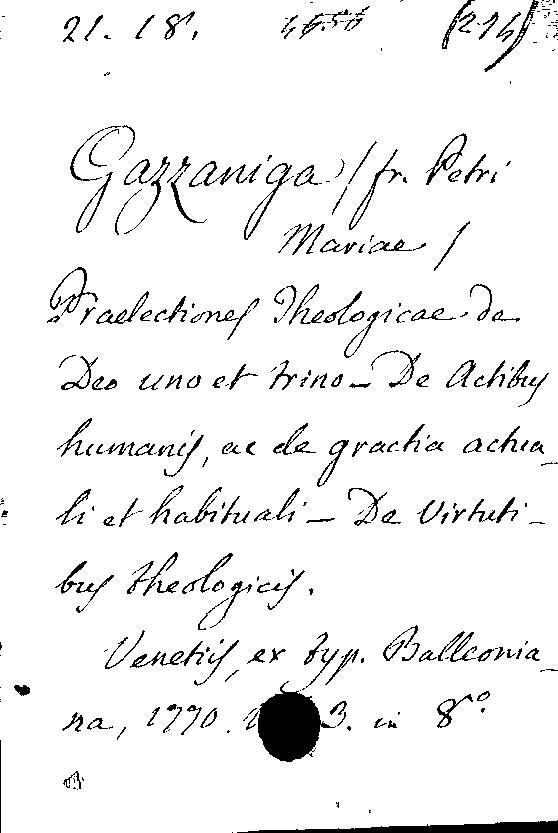 21. 18. (294)
Gazzaniga / fr. Petri
Mariae /
Praelectiones Theologicae de
Deo uno et trino _ De Actibus
humanis, ac de gractia actua_
li et habituali _ De Virtuti_
bus theologicis.
Venetiis, ex typ. Balleonia_
na, 1770. 3. in 8º